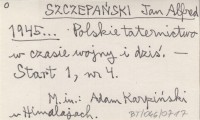 o
SZCZEPAŃSKI Jan Alfred
1945... Polskie taternictwo
w czasie wojny i dziś. —
Start 1, nr 4.
M. in.: Adam Karpiński
w Himalajach.